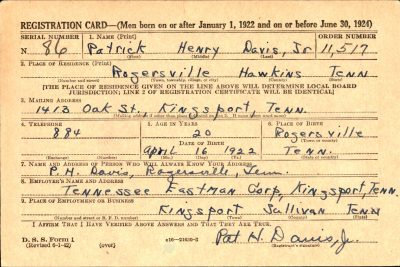 REGISTRATION CARD—(Men born on or after January 1, 1922 and on or before June 30, 1924)
SERIAL NUMBER 1. NAME (Print) ORDER NUMBER
N 86 Patrick Henry Davis, Jr 11,517
(First) (Middle) (Last)
2. PLACE OF RESIDENCE (Print)
Rogersville Hawkins Tenn
(Number and street) (Town, township, village, or city) (County) (State)
[THE PLACE OF RESIDENCE GIVEN ON THE LINE ABOVE WILL DETERMINE LOCAL BOARD
JURISDICTION; LINE 2 OF REGISTRATION CERTIFICATE WILL BE IDENTICAL]
3. MAILING ADDRESS
Oak St. Kingsport, Tenn.
4. TELEPHONE 5. AGE IN YEARS 6. PLACE OF BIRTH
884 20 Rogersville
DATE OF BIRTH
April 16 1922 Tenn.
(Exchange) (Number) (Mo.) (Day) (Yr.) (State or country)
7. NAME AND ADDRESS OF PERSON WHO WILL ALWAYS KNOW YOUR ADDRESS
P. H. Davis, Rogersville, Tenn.
8. EMPLOYER'S NAME AND ADDRESS
Tennessee Eastman Corp, Kingsport, Tenn.
9. PLACE OF EMPLOYMENT OR BUSINESS
Kingsport Sullivan Tenn
(Number and street or R. F. D. number) (Town) (County) (State)
I AFFIRM THAT I HAVE VERIFIED ABOVE ANSWERS AND THAT THEY ARE TRUE.
D. S. S. Form 1
(Revised 6-1-42) (over) Pat H. Davis, Jr.
(Registrant's signature)